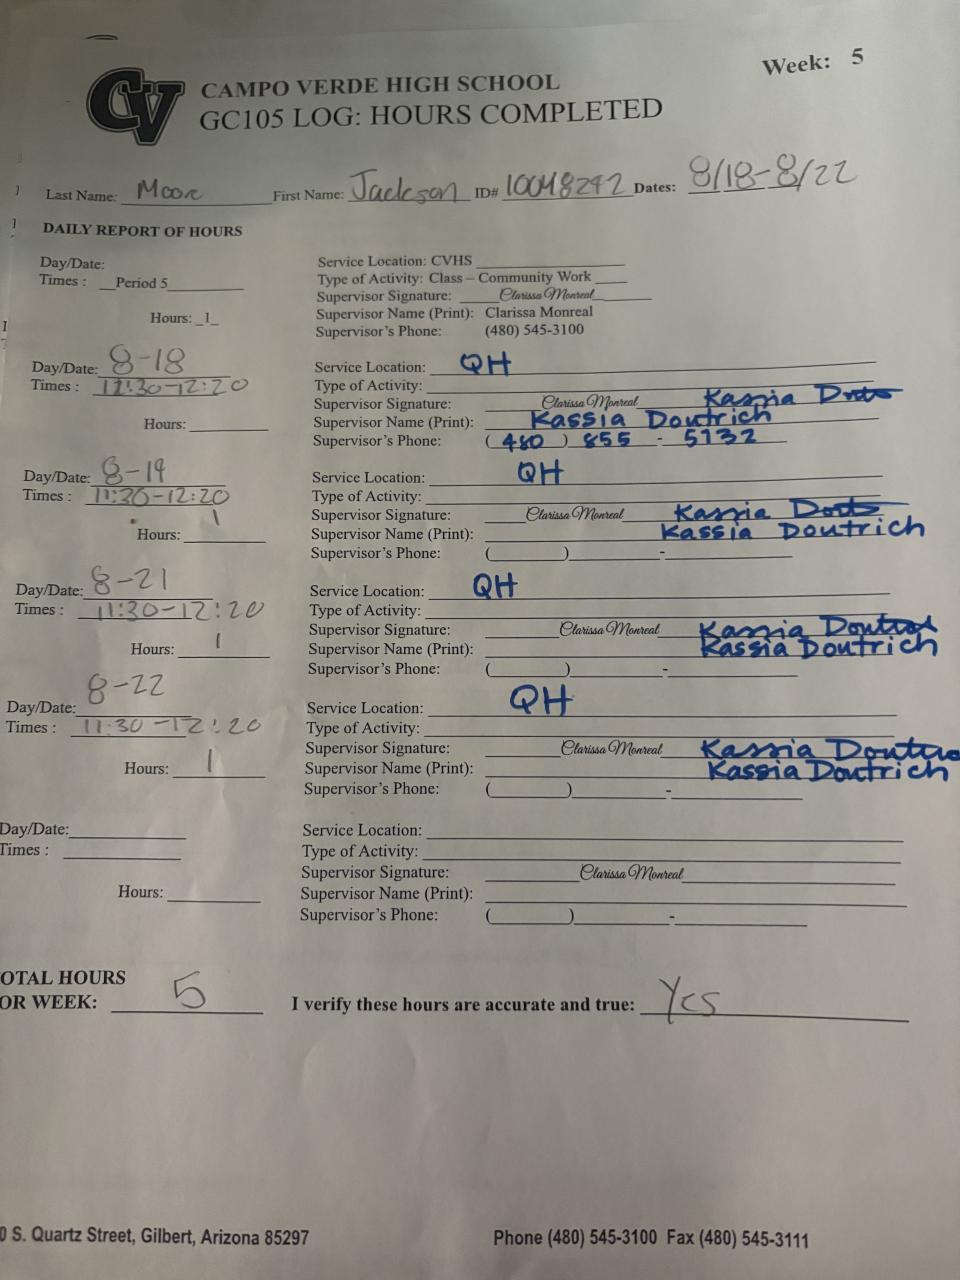 Week: 5
CV
CAMPO VERDE HIGH SCHOOL
GC105 LOG: HOURS COMPLETED
Last Name: Moore First Name: Jackson ID# 10048242 Dates: 8/18-8/22
DAILY REPORT OF HOURS
Day/Date:
Times : Period 5
Hours: 1
Service Location: CVHS
Type of Activity: Class – Community Work
Supervisor Signature: Clarissa Monreal
Supervisor Name (Print): Clarissa Monreal
Supervisor's Phone: (480) 545-3100
Day/Date: 8-18
Times : 11:30-12:20
Hours:
Service Location: QH
Type of Activity:
Supervisor Signature: Clarissa Monreal Kassia
Supervisor Name (Print): Kassia Doutrich
Supervisor's Phone: (480) 855-5132
Day/Date: 8-19
Times : 11:30-12:20
Hours: 1
Service Location: QH
Type of Activity:
Supervisor Signature: Clarissa Monreal Kassia
Supervisor Name (Print): Kassia Doutrich
Supervisor's Phone: ( ) -
Day/Date: 8-21
Times : 11:30-12:20
Hours: 1
Service Location: QH
Type of Activity:
Supervisor Signature: Clarissa Monreal Kassia
Supervisor Name (Print): Kassia Doutrich
Supervisor's Phone: ( ) -
Day/Date: 8-22
Times : 11:30-12:20
Hours: 1
Service Location: QH
Type of Activity:
Supervisor Signature: Clarissa Monreal Kassia
Supervisor Name (Print): Kassia Doutrich
Supervisor's Phone: ( ) -
Day/Date:
Times :
Hours:
Service Location:
Type of Activity:
Supervisor Signature: Clarissa Monreal
Supervisor Name (Print):
Supervisor's Phone: ( ) -
OTAL HOURS
OR WEEK: 5
I verify these hours are accurate and true: Yes
0 S. Quartz Street, Gilbert, Arizona 85297
Phone (480) 545-3100 Fax (480) 545-3111